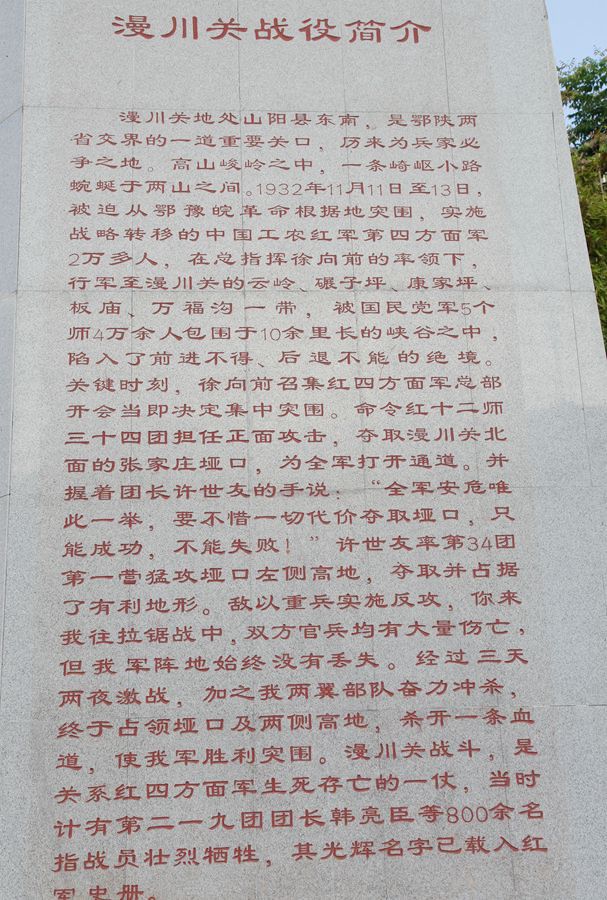 漫川关战役简介
漫川关地处山阳县东南，是鄂陕两
省交界的一道重要关口，历来为兵家必
争之地。高山峻岭之中，一条崎岖小路
蜿蜒于两山之间。1932年11月11日至13日，
被迫从鄂豫皖革命根据地突围，实施
战略转移的中国工农红军第四方面军
2万多人，在总指挥徐向前的率领下，
行军至漫川关的云岭、碾子坪、康家坪、
板庙、万福沟一带，被国民党军5个
师4万余人包围于10余里长的峡谷之中，
陷入了前进不得、后退不能的绝境。
关键时刻，徐向前召集红四方面军总部
开会当即决定集中突围。命令红十二师
三十四团担任正面攻击，夺取漫川关北
面的张家庄垭口，为全军打开通道。并
握着团长许世友的手说：“全军安危唯
此一举，要不惜一切代价夺取垭口，只
能成功，不能失败！”许世友率第34团
第一营猛攻垭口左侧高地，夺取并占据
了有利地形。敌以重兵实施反攻，你来
我往拉锯战中，双方官兵均有大量伤亡，
但我军阵地始终没有丢失。经过三天
两夜激战，加之我两翼部队奋力冲杀，
终于占领垭口及两侧高地，杀开一条血
道，使我军胜利突围。漫川关战斗，是
关系红四方面军生死存亡的一仗，当时
计有第二一九团团长韩亮臣等800余名
指战员壮烈牺牲，其光辉名字已载入红
军史册。